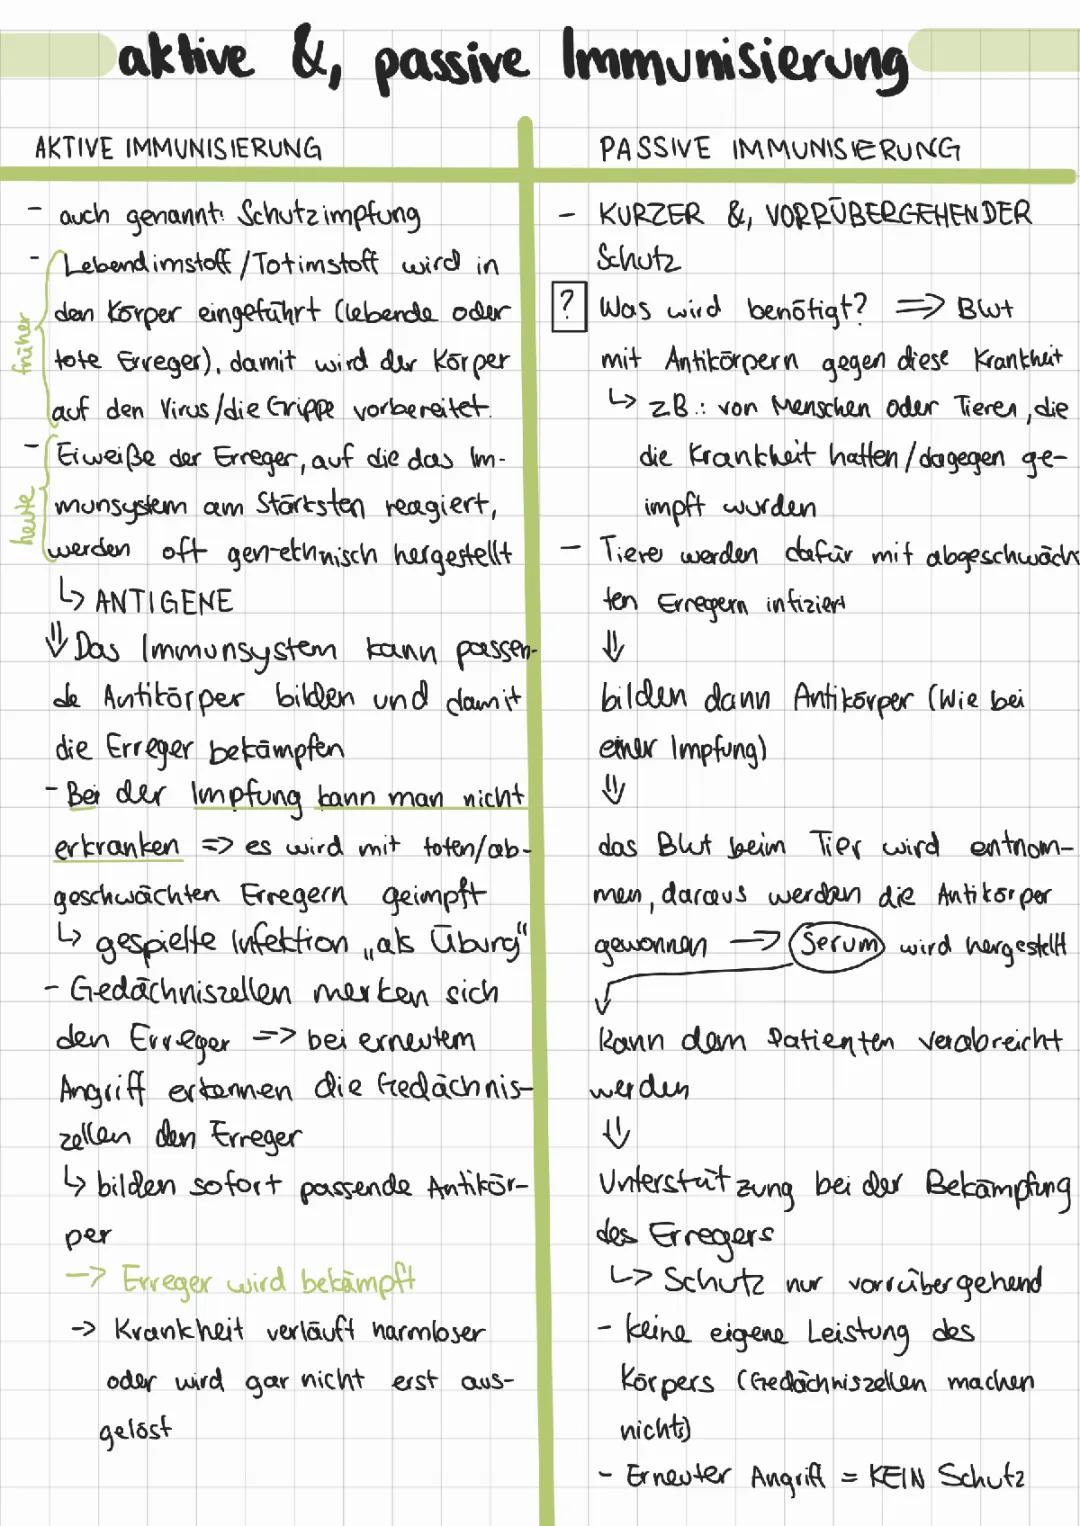 aktive &, passive Immunisierung
AKTIVE IMMUNISIERUNG
- auch genannt: Schutzimpfung
- Lebendimstoff/Totimstoff wird in
den Körper eingeführt (lebende oder
tote Erreger), damit wird der Körper
auf den Virus/die Grippe vorbereitet.
früher
- Eiweiße der Erreger, auf die das Im-
munsystem am Stärksten reagiert,
werden oft gen-ethnisch hergestellt
heute
↳ ANTIGENE
⇓ Das Immunsystem kann passen-
de Antikörper bilden und damit
die Erreger bekämpfen
- Bei der Impfung kann man nicht
erkranken => es wird mit toten/ab-
geschwächten Erregern geimpft
↳ gespielte Infektion „als Übung"
- Gedächniszellen merken sich
den Erreger => bei erneutem
Angriff erkennen die Gedächnis-
zellen den Erreger
↳ bilden sofort passende Antikör-
per
-> Erreger wird bekämpft
-> Krankheit verläuft harmloser
oder wird gar nicht erst aus-
gelöst
PASSIVE IMMUNISIERUNG
- KURZER &, VORRÜBERGEHENDER
Schutz
? Was wird benötigt? => Blut
mit Antikörpern gegen diese Krankheit
↳ z.B.: von Menschen oder Tieren, die
die Krankheit hatten/dagegen ge-
impft wurden
- Tiere werden dafür mit abgeschwäch
ten Erregern infiziert
⇓
bilden dann Antikörper (Wie bei
einer Impfung)
⇓
das Blut beim Tier wird entnom-
men, daraus werden die Antikörper
gewonnen -> Serum wird hergestellt
Kann dem Patienten verabreicht
werden
⇓
Unterstützung bei der Bekämpfung
des Erregers
↳ Schutz nur vorrübergehend
- keine eigene Leistung des
Körpers (Gedächniszellen machen
nichts)
- Erneuter Angriff = KEIN Schutz